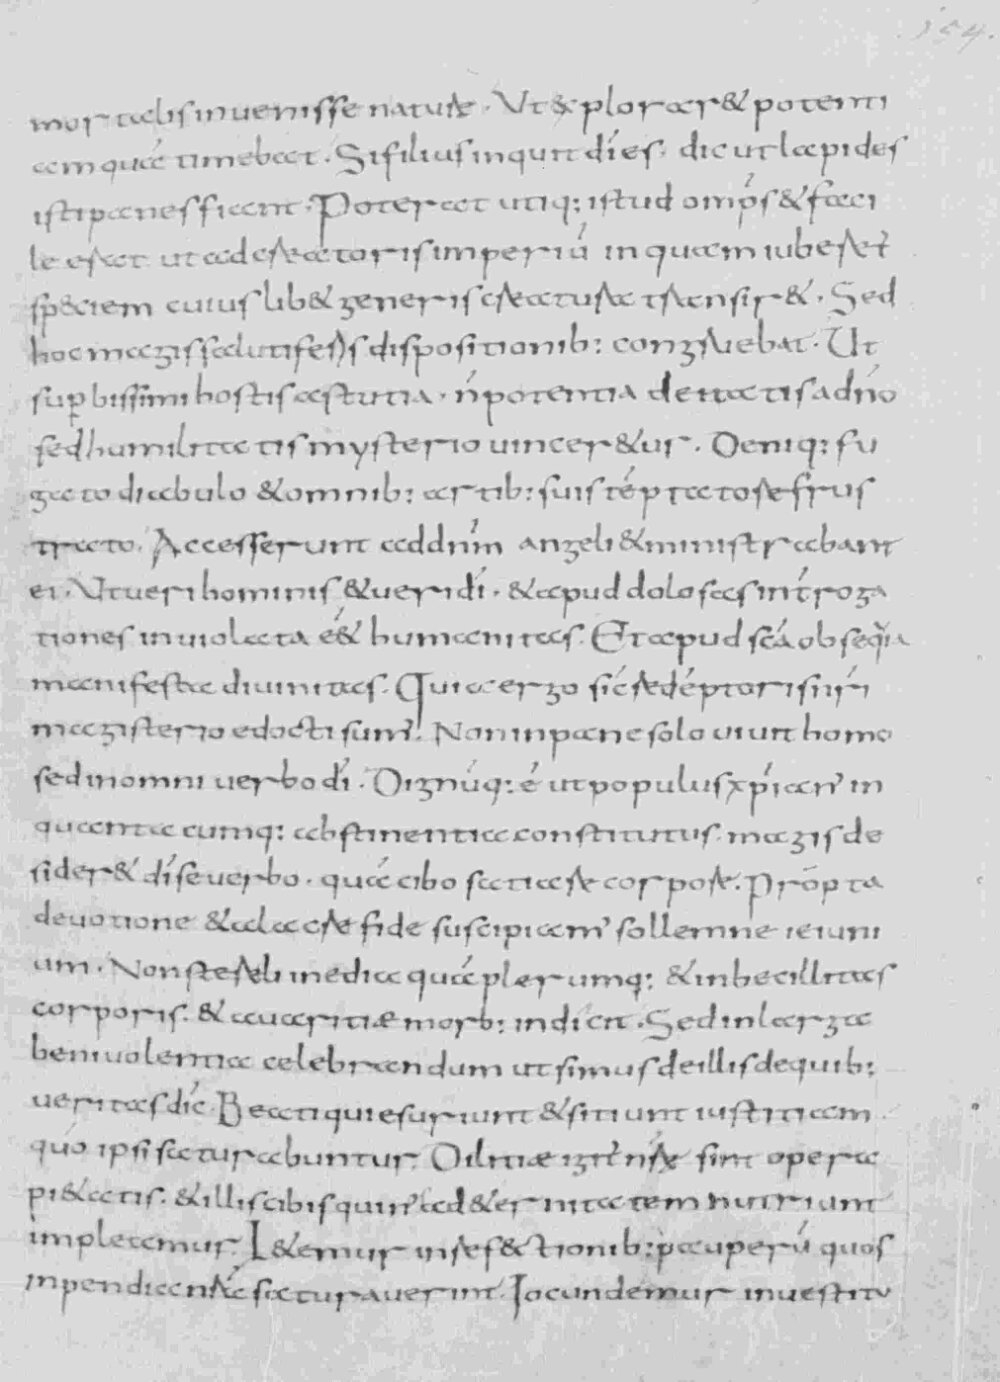 154.
mortalis inuenisse naturae. Ut & ploraret & potenti
am quā timebat. Si filius inquit dī es. dic ut lapides
isti panes fiant. Poterat utiq: istud omp̄s & faci
le erat ut ad creatoris imperiū in quam iuberet
speciem cuiuslib& generis creatura transir&. Sed
hoc magis salutiferis dispositionib: congruebat. Ut
sup̱bissimi hostis astutia. ń potentia deitatis a dn̄o
sed humilitatis mysterio uincer&ur. Deniq: fu
gato diabulo & omnib: artib: suis tēptatore frus
trato. Accesserunt ad dn̄m angeli & ministrabant
ei. Ut ueri hominis & ueri dī. & apud dolosas int́roga
tiones inuiolata e& humanitas. Et apud sc̄a obsequia
manifesta diuinitas. Quia ergo sic redēptoris nr̄i
magisterio edocti sum'. Non in pane solo uiuit homo
sed in omni uerbo dī. Dignūq: ē ut populus xp̄ian' in
quantacumq: abstinentia constitutus. magis de
sider& dī se uerbo. quā cibo satiare corpore. Prōpta
deuotione & alacre fide suscipiam' sollemne ieiuni
um. Non sterili inedia quā plerumq: & inbecillitas
corporis. & auaritiae morb: indicit. Sed in larga
beniuolentia celebrandum ut simus de illis de quib:
ueritas dīc. Beati qui esuriunt & sitiunt iustitiam.
quō ipsi saturabuntur. Dilitiae igit' nr̄ae sint opera
pi&atis. & illis cibis qui n' ad &ernitatem nutriunt
impleamur. L&emur in refectionib: pauperū quos
inpendia nr̄a saturauerint. Jocundemur in uestitu